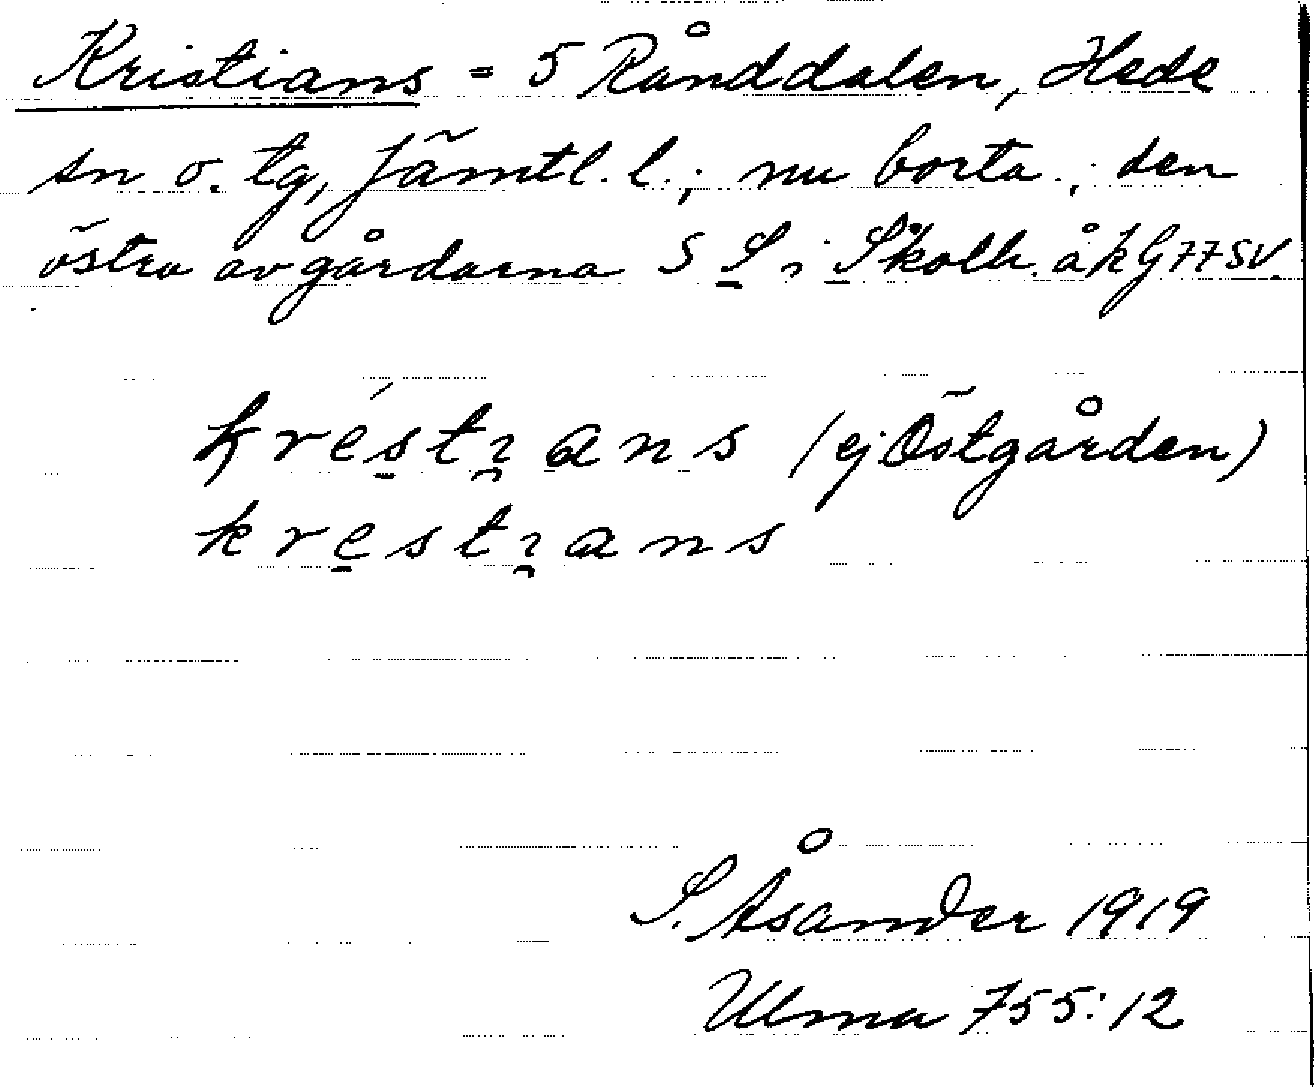 Kristians = 5 Rånddalen, Hede
sn o. tg, Jämtl. l.; nu borta; den
östra av gårdarna S S i Skolh. åkG77SV.
kréstıans (ej Östgården)
krestıans
S. Åsander 1919
Ulma 755:12